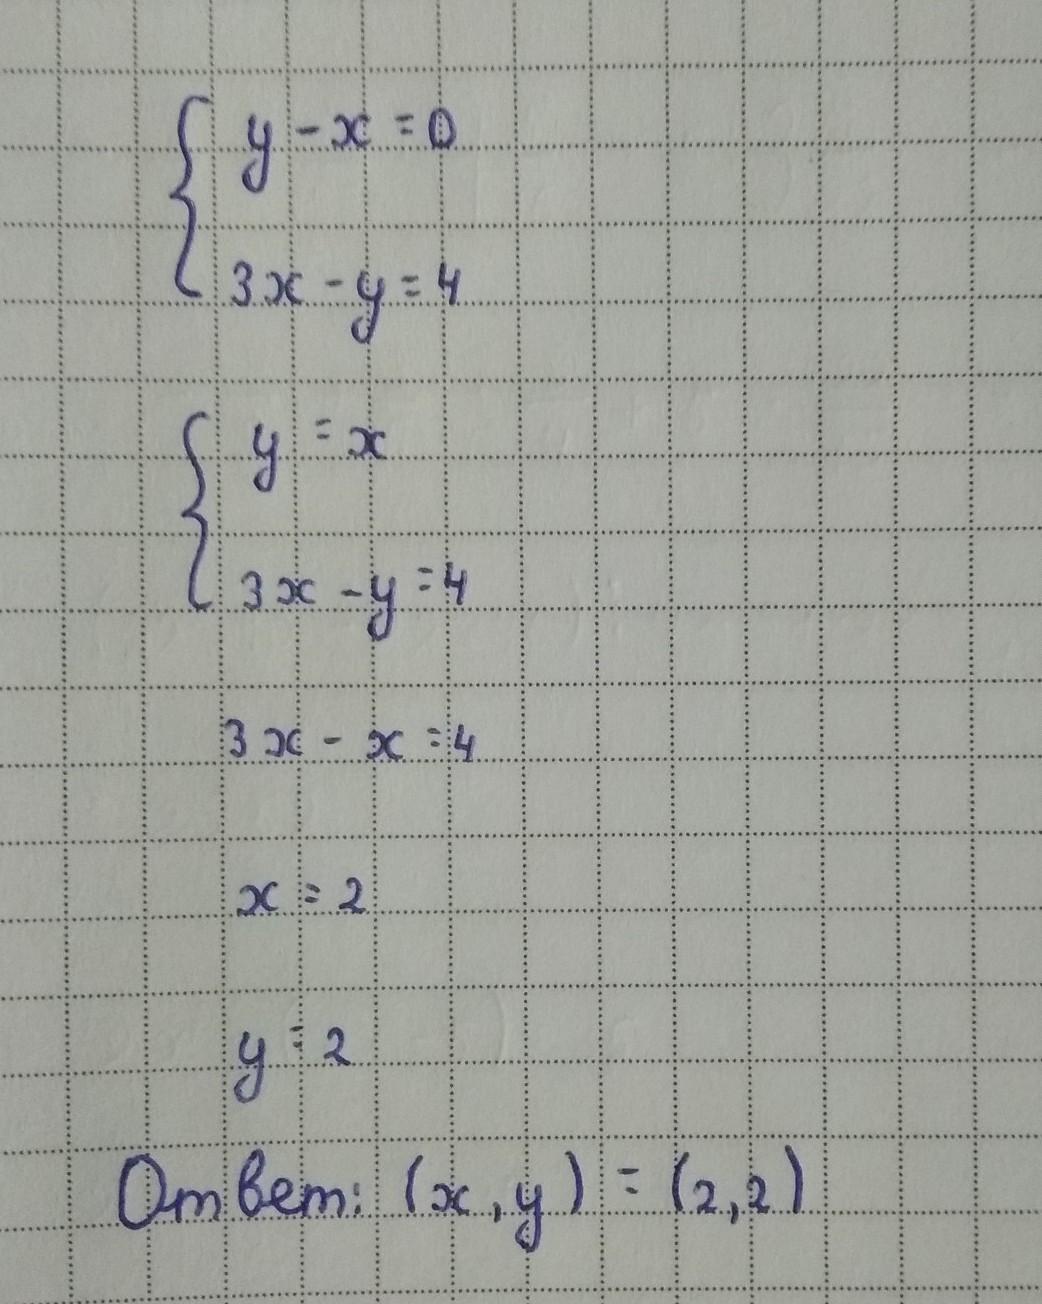 y - x = 0
3x - y = 4
y = x
3x - y = 4
3x - x = 4
x = 2
y = 2
Ответ: (x, y) = (2, 2)